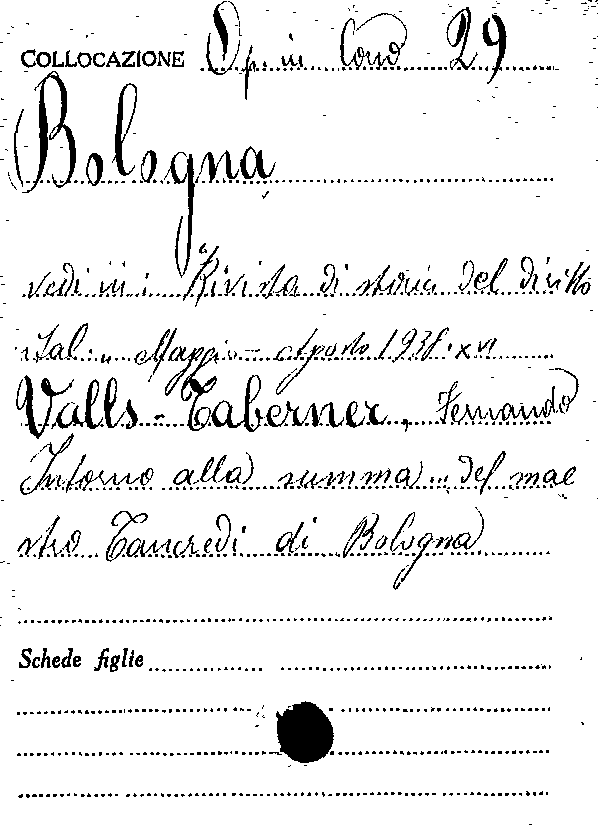 COLLOCAZIONE Op. in Cons 29
Bologna
vedi in: "Rivista di storia del diritto
ital." Maggio - Agosto 1938. XVI
Valls-Taberner, Fernando
Intorno alla summa... del mae
stro Tancredi di Bologna
Schede figlie